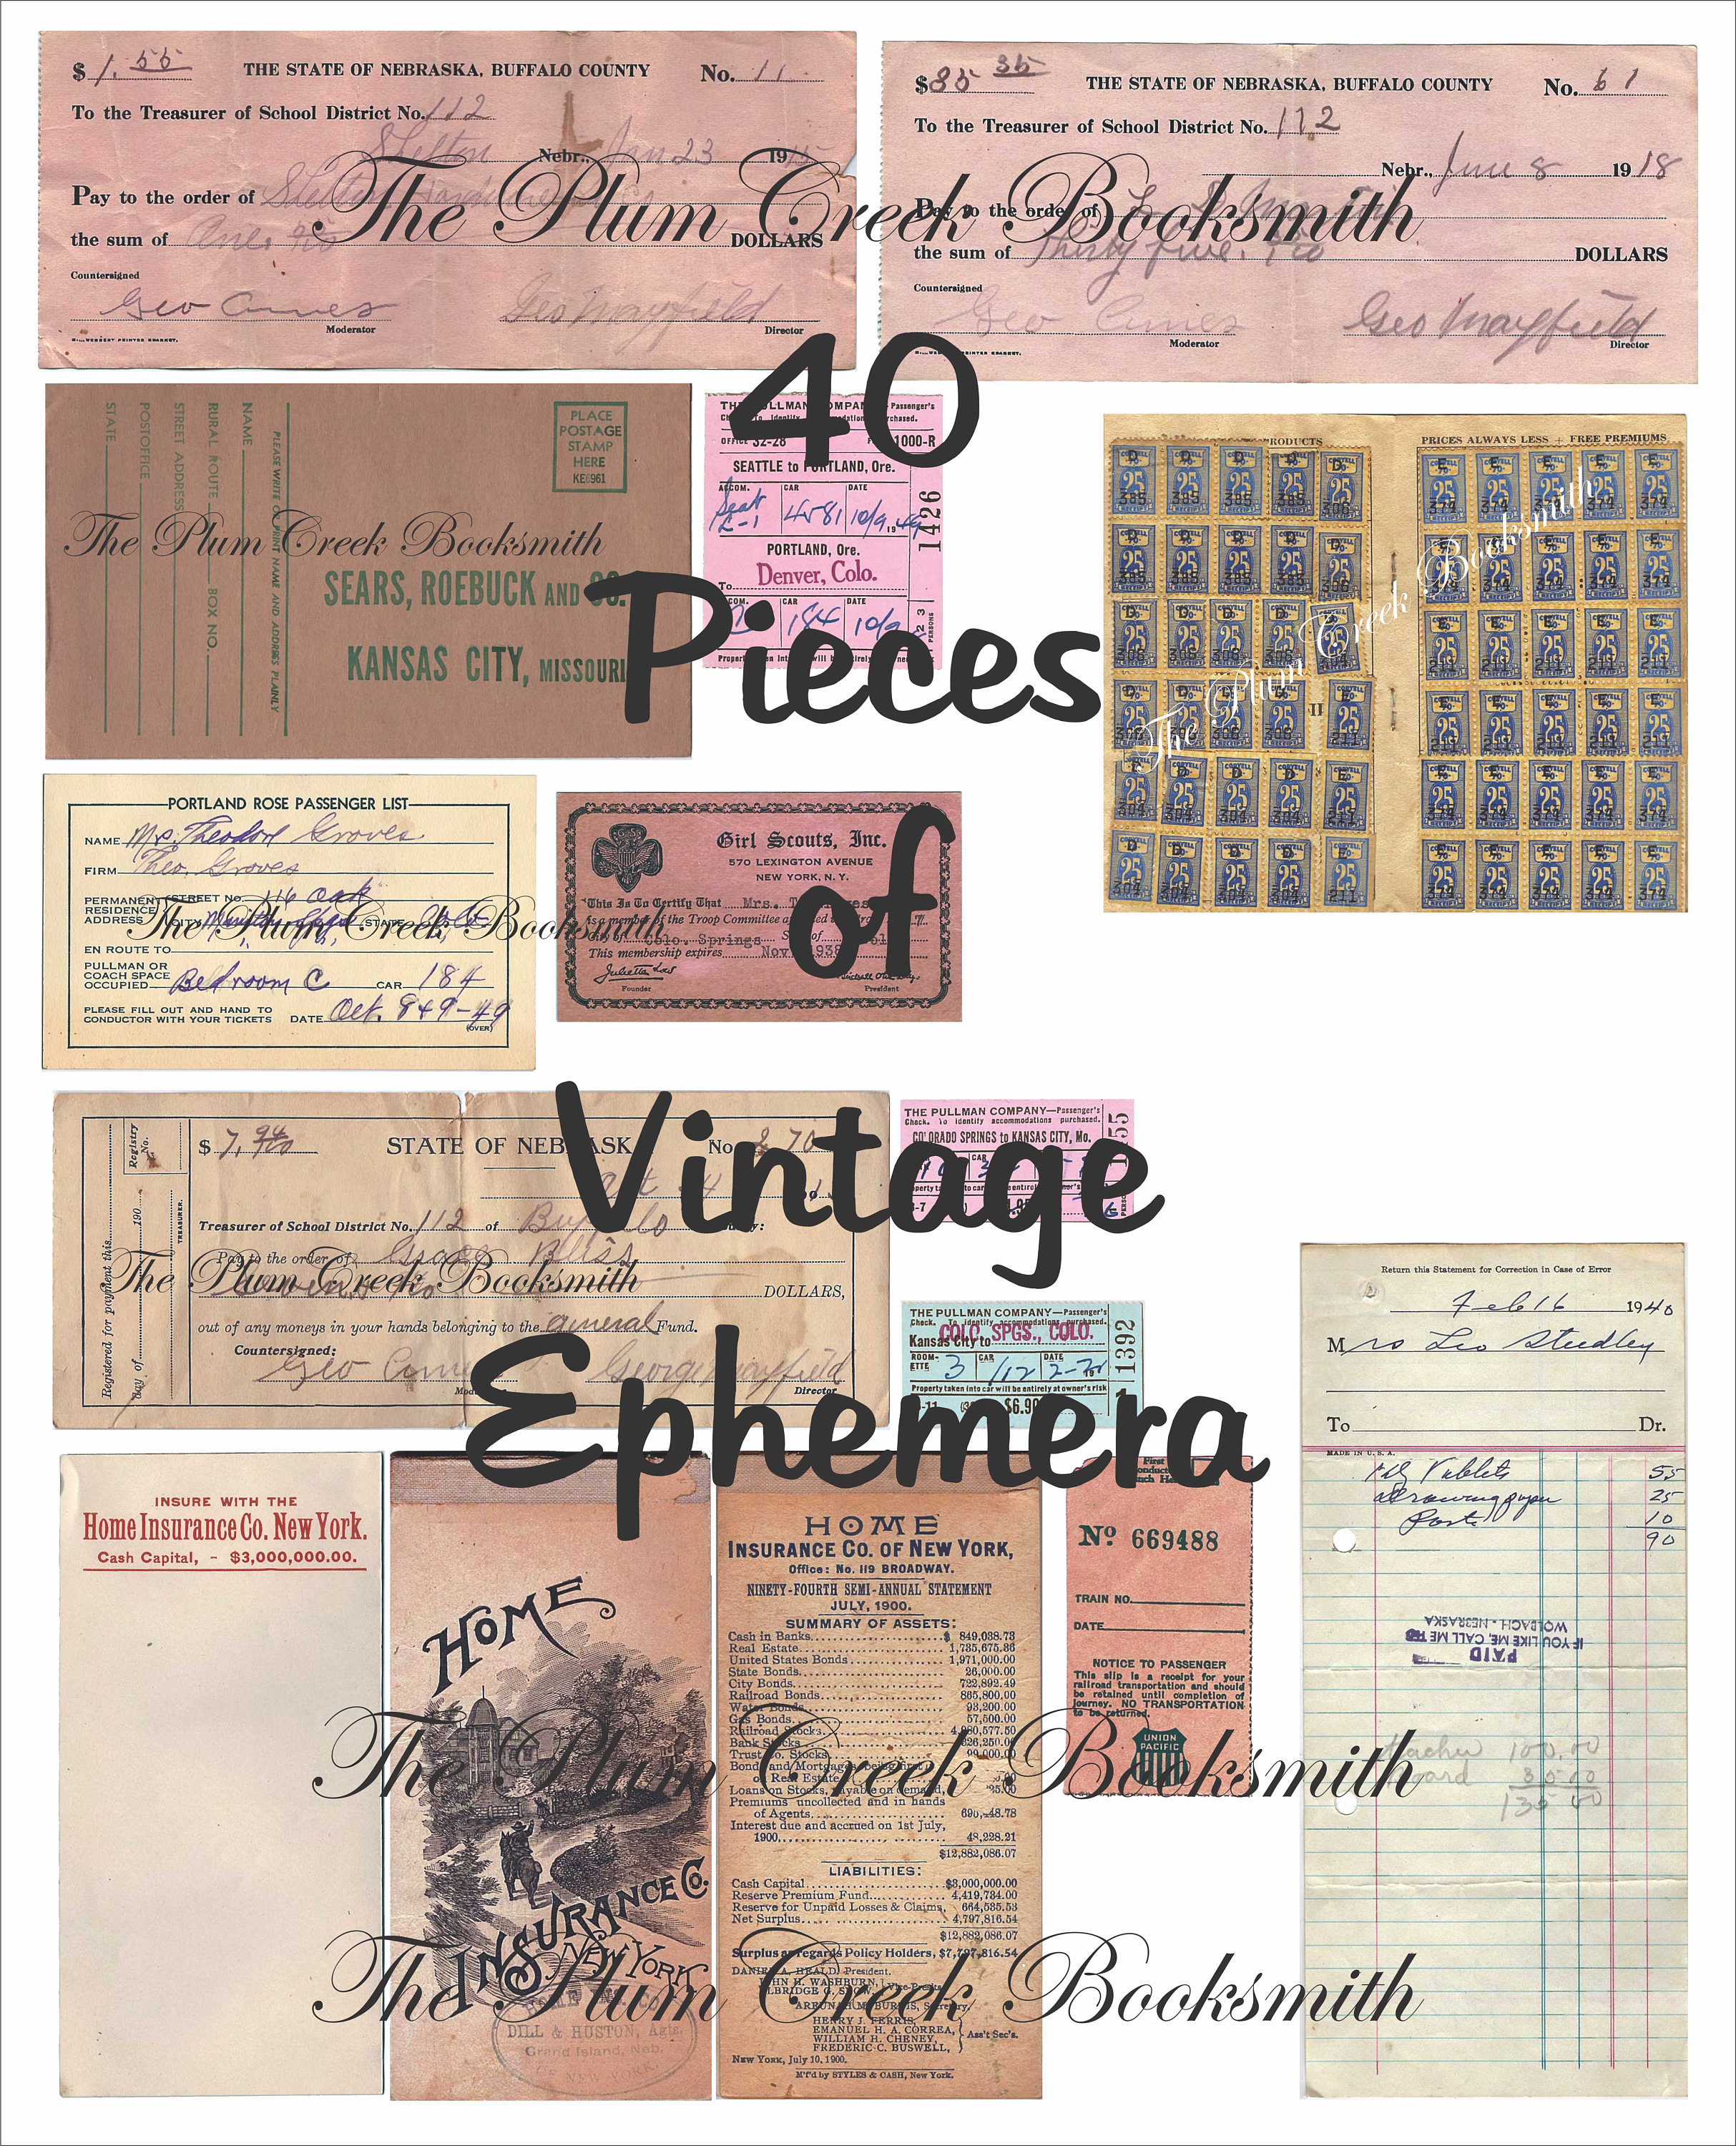 $ 1.55 THE STATE OF NEBRASKA, BUFFALO COUNTY No. 11
To the Treasurer of School District No. 112
Shelton Nebr., Jan 23 19
Pay to the order of Shelton
the sum of DOLLARS
Countersigned
Geo Mayfield
Moderator Director
$35 35 THE STATE OF NEBRASKA, BUFFALO COUNTY No. 61
To the Treasurer of School District No. 112
Nebr., June 8 1918
Pay to the order of
the sum of Thirty five DOLLARS
Countersigned
Geo Mayfield
Moderator Director
The Plum Creek Booksmith
40
Pieces
of
Vintage
Ephemera
PLACE
POSTAGE
STAMP
HERE
KE6961
STATE
POSTOFFICE
STREET ADDRESS
RURAL ROUTE BOX NO.
NAME
PLEASE WRITE OR PRINT NAME AND ADDRESS PLAINLY
SEARS, ROEBUCK AND CO.
KANSAS CITY, MISSOURI
The Plum Creek Booksmith
THE PULLMAN COMPANY Passenger's
Check. To identify accommodations purchased.
OFFICE 32-28 1000-R
SEATTLE to PORTLAND, Ore.
ACCOM. CAR DATE
Seat 4581 10/9 1949
PORTLAND, Ore.
To Denver, Colo.
CAR DATE
184 10/9
1426
PERSONS
PRODUCTS
PRICES ALWAYS LESS + FREE PREMIUMS
The Plum Creek Booksmith
PORTLAND ROSE PASSENGER LIST
NAME Mrs. Theodore Groves
FIRM Theo. Groves
PERMANENT RESIDENCE ADDRESS STREET No. 116 Oak
CITY STATE Colo
EN ROUTE TO
PULLMAN OR COACH SPACE OCCUPIED Bedroom C CAR 184
PLEASE FILL OUT AND HAND TO
CONDUCTOR WITH YOUR TICKETS DATE Oct. 8+9-49
(OVER)
The Plum Creek Booksmith
Girl Scouts, Inc.
570 LEXINGTON AVENUE
NEW YORK, N. Y.
This Is To Certify That Mrs.
Is a member of the Troop Committee
City of Colo. Springs
This membership expires Nov 1938
Juliette Low
Founder President
Registered for payment this
day of 190
TREASURER.
Registry No.
$ 7.94/100 STATE OF NEBRASK No. 70
Treasurer of School District No. 112 of Buffalo
Pay to the order of Bliss
DOLLARS,
out of any moneys in your hands belonging to the general Fund.
Countersigned:
George Mayfield
Director
The Plum Creek Booksmith
THE PULLMAN COMPANY—Passenger's
Check. To identify accommodations purchased.
COLORADO SPRINGS to KANSAS CITY, Mo.
CAR
THE PULLMAN COMPANY—Passenger's
Check. To identify accommodations purchased.
Kansas City to COLO. SPGS., COLO.
ROOMETTE CAR DATE
3 112
Property taken into car will be entirely at owner's risk
$6.90
1392
Return this Statement for Correction in Case of Error
Feb 16 1940
Mrs Leo Studley
To Dr.
MADE IN U. S. A.
Tablets 55
Drawing paper 25
10
90
PAID
IF YOU LIKE ME, CALL ME
WOLBACH - NEBRASKA
100.00
35.00
135.00
INSURE WITH THE
Home Insurance Co. New York.
Cash Capital, - $3,000,000.00.
HOME
INSURANCE CO.
NEW YORK
DILL & HUSTON, Agts.
Grand Island, Neb.
OF NEW YORK.
HOME
INSURANCE CO. OF NEW YORK,
Office: No. 119 BROADWAY.
NINETY-FOURTH SEMI-ANNUAL STATEMENT
JULY, 1900.
SUMMARY OF ASSETS:
Cash in Banks $ 849,038.73
Real Estate 1,735,675.86
United States Bonds 1,971,000.00
State Bonds 26,000.00
City Bonds 722,892.49
Railroad Bonds 865,800.00
Water Bonds 93,200.00
Gas Bonds 57,500.00
Railroad Stocks
Bank Stocks
Trust Co. Stocks 99,000.00
Bond and Mortgages being first
on Real Estate
Loans on Stocks, payable on demand,
Premiums uncollected and in hands
of Agents
Interest due and accrued on 1st July,
1900 48,228.21
$12,882,086.07
LIABILITIES:
Cash Capital $3,000,000.00
Reserve Premium Fund 4,419,734.00
Reserve for Unpaid Losses & Claims, 664,535.53
Net Surplus 4,797,816.54
$12,882,086.07
Surplus as regards Policy Holders, $7,797,816.54
DANIEL A. HEALD, President.
JOHN H. WASHBURN,
ELBRIDGE G. SNOW, Vice-Presidents
AREUNAH M. BURTIS, Secretary
HENRY J. FERRIS,
EMANUEL H. A. CORREA,
WILLIAM H. CHENEY,
FREDERIC C. BUSWELL,
Ass't Sec's.
New York, July 10, 1900.
M'f'd by STYLES & CASH, New York.
No 669488
TRAIN NO.
DATE
NOTICE TO PASSENGER
This slip is a receipt for your
railroad transportation and should
be retained until completion of
journey. NO TRANSPORTATION
to be returned.
UNION
PACIFIC
The Plum Creek Booksmith
The Plum Creek Booksmith